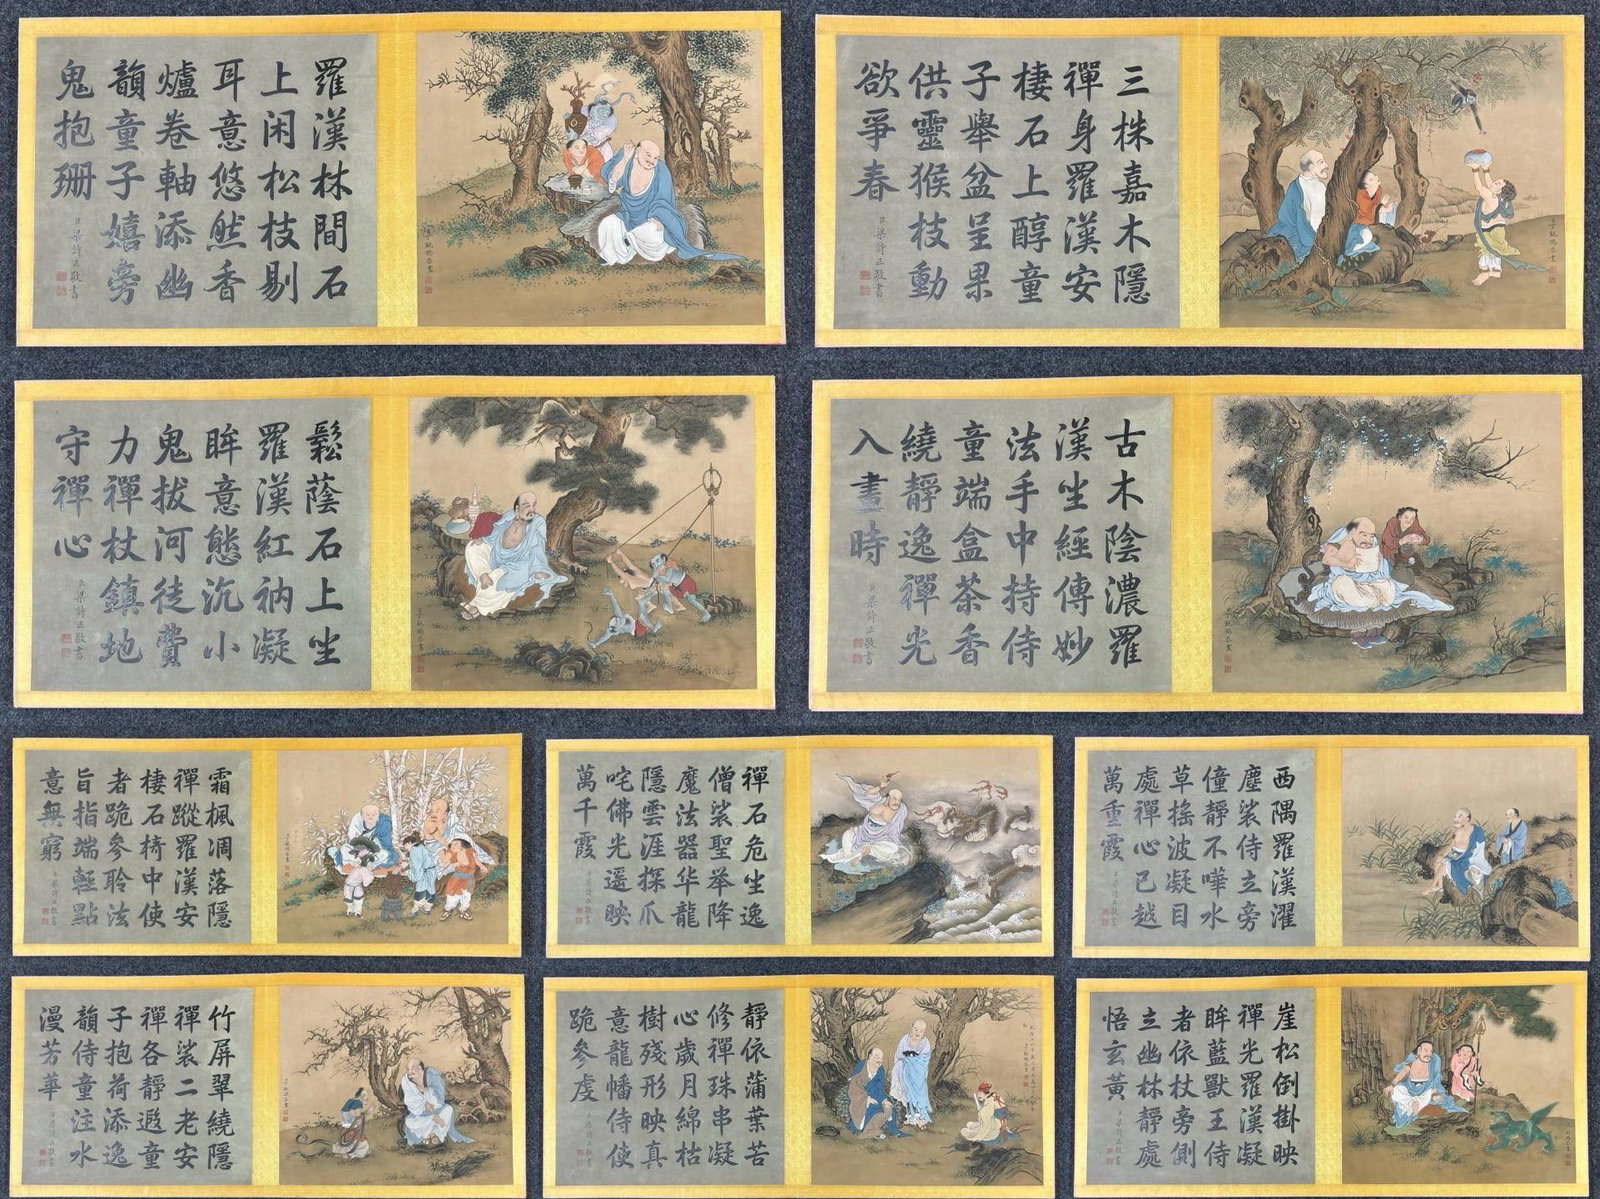 羅漢林間石
上闲松枝剔
耳意悠然香
爐卷軸添幽
韻童子嬉旁
鬼抱珊
臣梁詩正敬書
三株嘉木隱
禪身羅漢安
棲石上醇童
子舉盆呈果
供靈猴枝動
欲爭春
臣梁詩正敬書
鬆蔭石上坐
羅漢紅衲凝
眸意態沉小
鬼拔河徒費
力禪杖鎮地
守禪心
臣梁詩正敬書
古木陰濃羅
漢坐經傳妙
法手中持侍
童端盒茶香
繞靜逸禪光
入畫時
臣梁詩正敬書
霜楓凋落隱
禪蹤羅漢安
棲石椅中使
者跪參聆法
旨指端輕點
意無窮
禪石危坐逸
僧裟聖举降
魔法器华龍
隱雲涯探爪
咤佛光遥映
萬千霞
西隅羅漢濯
塵裟侍立旁
僮靜不嘩水
草搖波凝目
處禪心已越
萬重霞
竹屏翠繞隱
禪裟二老安
禪各靜遐童
子抱荷添逸
韻侍童注水
漫芳華
靜依蒲葉苦
修禪珠串凝
心歲月綿枯
樹殘形映真
意龍幡侍使
跪參虔
崖松倒掛映
禪光羅漢凝
眸藍獸王侍
者依杖旁側
立幽林靜處
悟玄黃